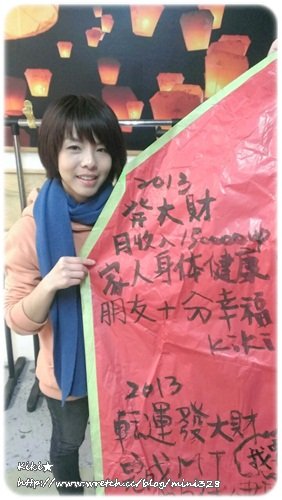 2013
發大財
月收入150000up
家人身体健康
朋友十分幸福
kiki
2013
轉運發大財
Kiki★
http://www.wretch.cc/blog/mini328